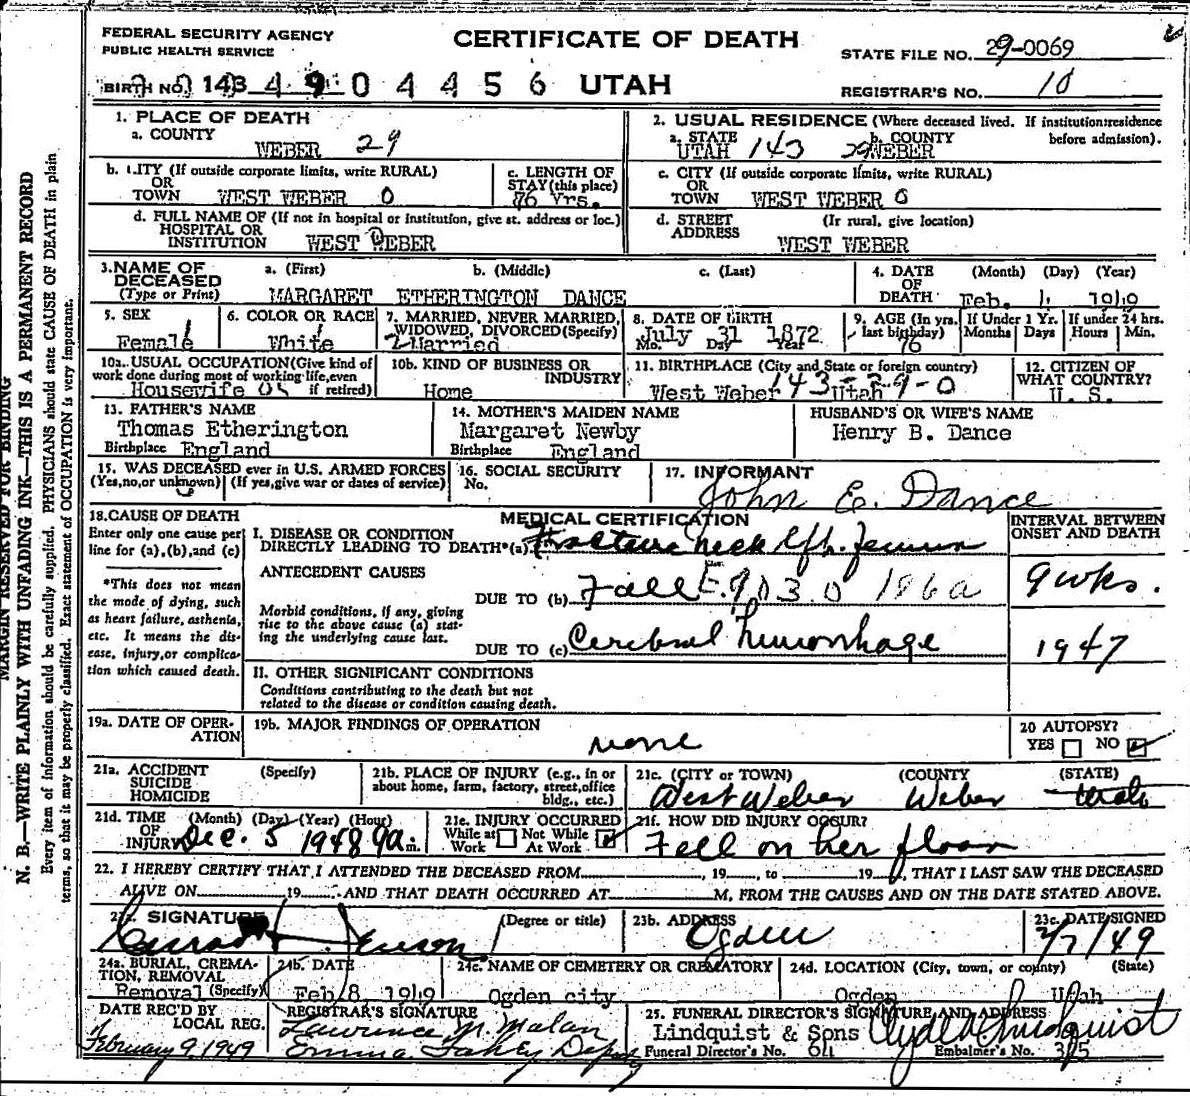 FEDERAL SECURITY AGENCY
PUBLIC HEALTH SERVICE
CERTIFICATE OF DEATH
STATE FILE NO. 29-0069
BIRTH NO. 143 4 9 0 4 4 5 6 UTAH
REGISTRAR'S NO. 10
1. PLACE OF DEATH
a. COUNTY
WEBER 29
2. USUAL RESIDENCE (Where deceased lived. If institution: residence before admission).
a. STATE b. COUNTY
UTAH 143 29 WEBER
b. CITY (If outside corporate limits, write RURAL)
OR
TOWN WEST WEBER 0
c. LENGTH OF
STAY (this place)
76 Yrs.
c. CITY (If outside corporate limits, write RURAL)
OR
TOWN WEST WEBER 0
d. FULL NAME OF (If not in hospital or institution, give st. address or loc.)
HOSPITAL OR
INSTITUTION WEST WEBER
d. STREET (If rural, give location)
ADDRESS
WEST WEBER
3. NAME OF DECEASED
(Type or Print)
a. (First) b. (Middle) c. (Last)
MARGARET ETHERINGTON DANCE
4. DATE (Month) (Day) (Year)
OF
DEATH Feb. 4, 1949
5. SEX
Female
6. COLOR OR RACE
White
7. MARRIED, NEVER MARRIED,
WIDOWED, DIVORCED (Specify)
2 Married
8. DATE OF BIRTH
July 31 1872
Mo. Day Year
9. AGE (In yrs. last birthday)
76
If Under 1 Yr.
Months Days
If under 24 hrs.
Hours Min.
10a. USUAL OCCUPATION (Give kind of
work done during most of working life, even
if retired)
Housewife
10b. KIND OF BUSINESS OR
INDUSTRY
Home
11. BIRTHPLACE (City and State or foreign country)
West Weber 143-29-0 Utah
12. CITIZEN OF
WHAT COUNTRY?
U. S.
13. FATHER'S NAME
Thomas Etherington
Birthplace England
14. MOTHER'S MAIDEN NAME
Margaret Newby
Birthplace England
HUSBAND'S OR WIFE'S NAME
Henry B. Dance
15. WAS DECEASED ever in U.S. ARMED FORCES
(Yes, no, or unknown) (If yes, give war or dates of service)
16. SOCIAL SECURITY
No.
17. INFORMANT
John E. Dance
18. CAUSE OF DEATH
Enter only one cause per
line for (a), (b), and (c)
*This does not mean
the mode of dying, such
as heart failure, asthenia,
etc. It means the dis-
ease, injury, or complica-
tion which caused death.
MEDICAL CERTIFICATION
INTERVAL BETWEEN
ONSET AND DEATH
I. DISEASE OR CONDITION
DIRECTLY LEADING TO DEATH* (a) Fracture neck lft. femur
ANTECEDENT CAUSES
DUE TO (b) Fall E 9030 186a
9 wks.
Morbid conditions, if any, giving
rise to the above cause (a) stat-
ing the underlying cause last.
DUE TO (c) Cerebral hemorrhage
1947
II. OTHER SIGNIFICANT CONDITIONS
Conditions contributing to the death but not
related to the disease or condition causing death.
19a. DATE OF OPER-
ATION
19b. MAJOR FINDINGS OF OPERATION
none
20 AUTOPSY?
YES NO
21a. ACCIDENT (Specify)
SUICIDE
HOMICIDE
21b. PLACE OF INJURY (e.g., in or
about home, farm, factory, street, office
bldg., etc.)
21c. (CITY or TOWN) (COUNTY (STATE)
West Weber Weber Utah
21d. TIME (Month) (Day) (Year) (Hour)
OF
INJURY Dec. 5 1948 9 a m.
21e. INJURY OCCURRED
While at Work Not While At Work
21f. HOW DID INJURY OCCUR?
Fell on her floor
22. I HEREBY CERTIFY THAT I ATTENDED THE DECEASED FROM , 19 , to 19 , THAT I LAST SAW THE DECEASED
ALIVE ON 19 AND THAT DEATH OCCURRED AT M, FROM THE CAUSES AND ON THE DATE STATED ABOVE.
SIGNATURE (Degree or title)
Jenson
23b. ADDRESS
Ogden
23c. DATE SIGNED
2/7/49
24a. BURIAL, CREMA-
TION, REMOVAL
Removal (Specify)
24b. DATE
Feb 8, 1949
24c. NAME OF CEMETERY OR CREMATORY
Ogden city
24d. LOCATION (City, town, or county) (State)
Ogden Utah
DATE REC'D BY
LOCAL REG.
February 9, 1949
REGISTRAR'S SIGNATURE
Lawrence N. Malan
Emma Fahey Deputy
25. FUNERAL DIRECTOR'S SIGNATURE AND ADDRESS
Lindquist & Sons Clyde Lindquist
Funeral Director's No. 64 Embalmer's No. 315
MARGIN RESERVED FOR BINDING
N. B.—WRITE PLAINLY WITH UNFADING INK—THIS IS A PERMANENT RECORD
Every item of information should be carefully supplied. PHYSICIANS should state CAUSE OF DEATH in plain
terms, so that it may be properly classified. Exact statement of OCCUPATION is very important.